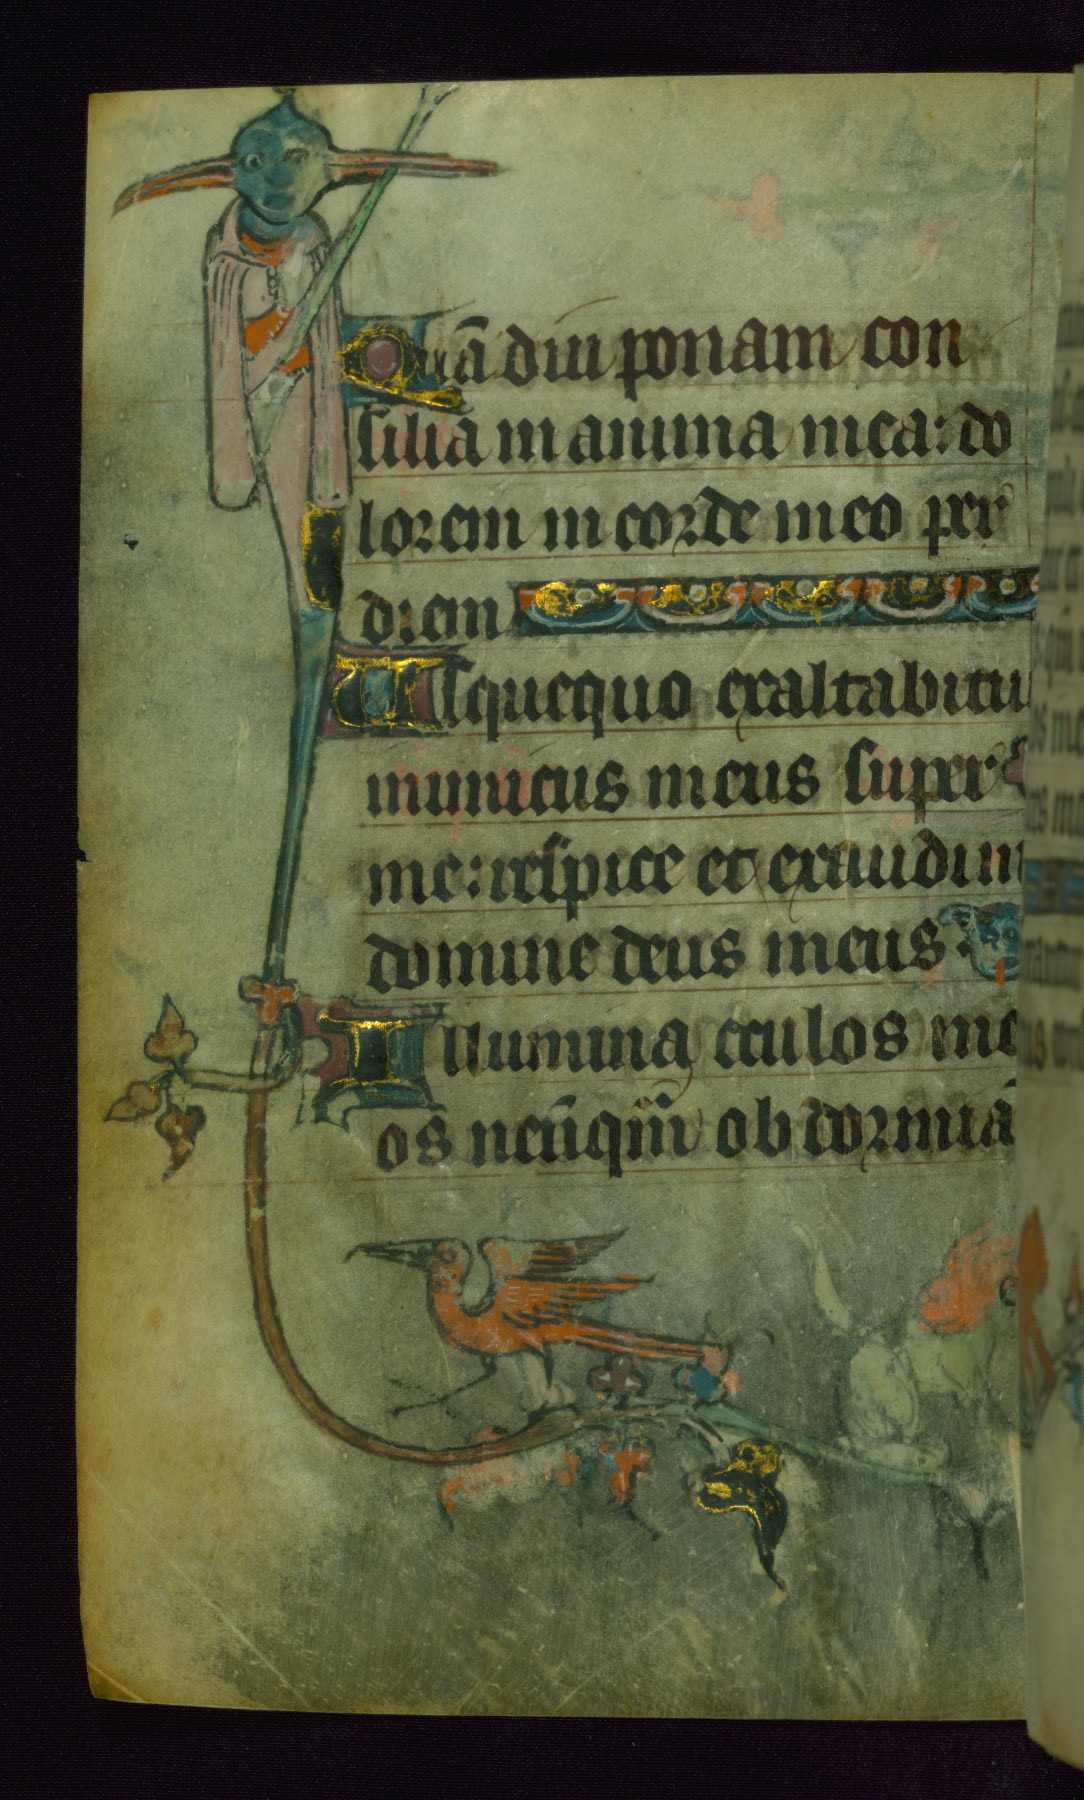 Quā diu ponam con
silia in anima mea: do
lorem in corde meo per
diem
Usquequo exaltabitu
inimicus meus super
me: respice et exaudi m
domine deus meus.
Illumina oculos me
os ne ūqm̄ ob dormiā